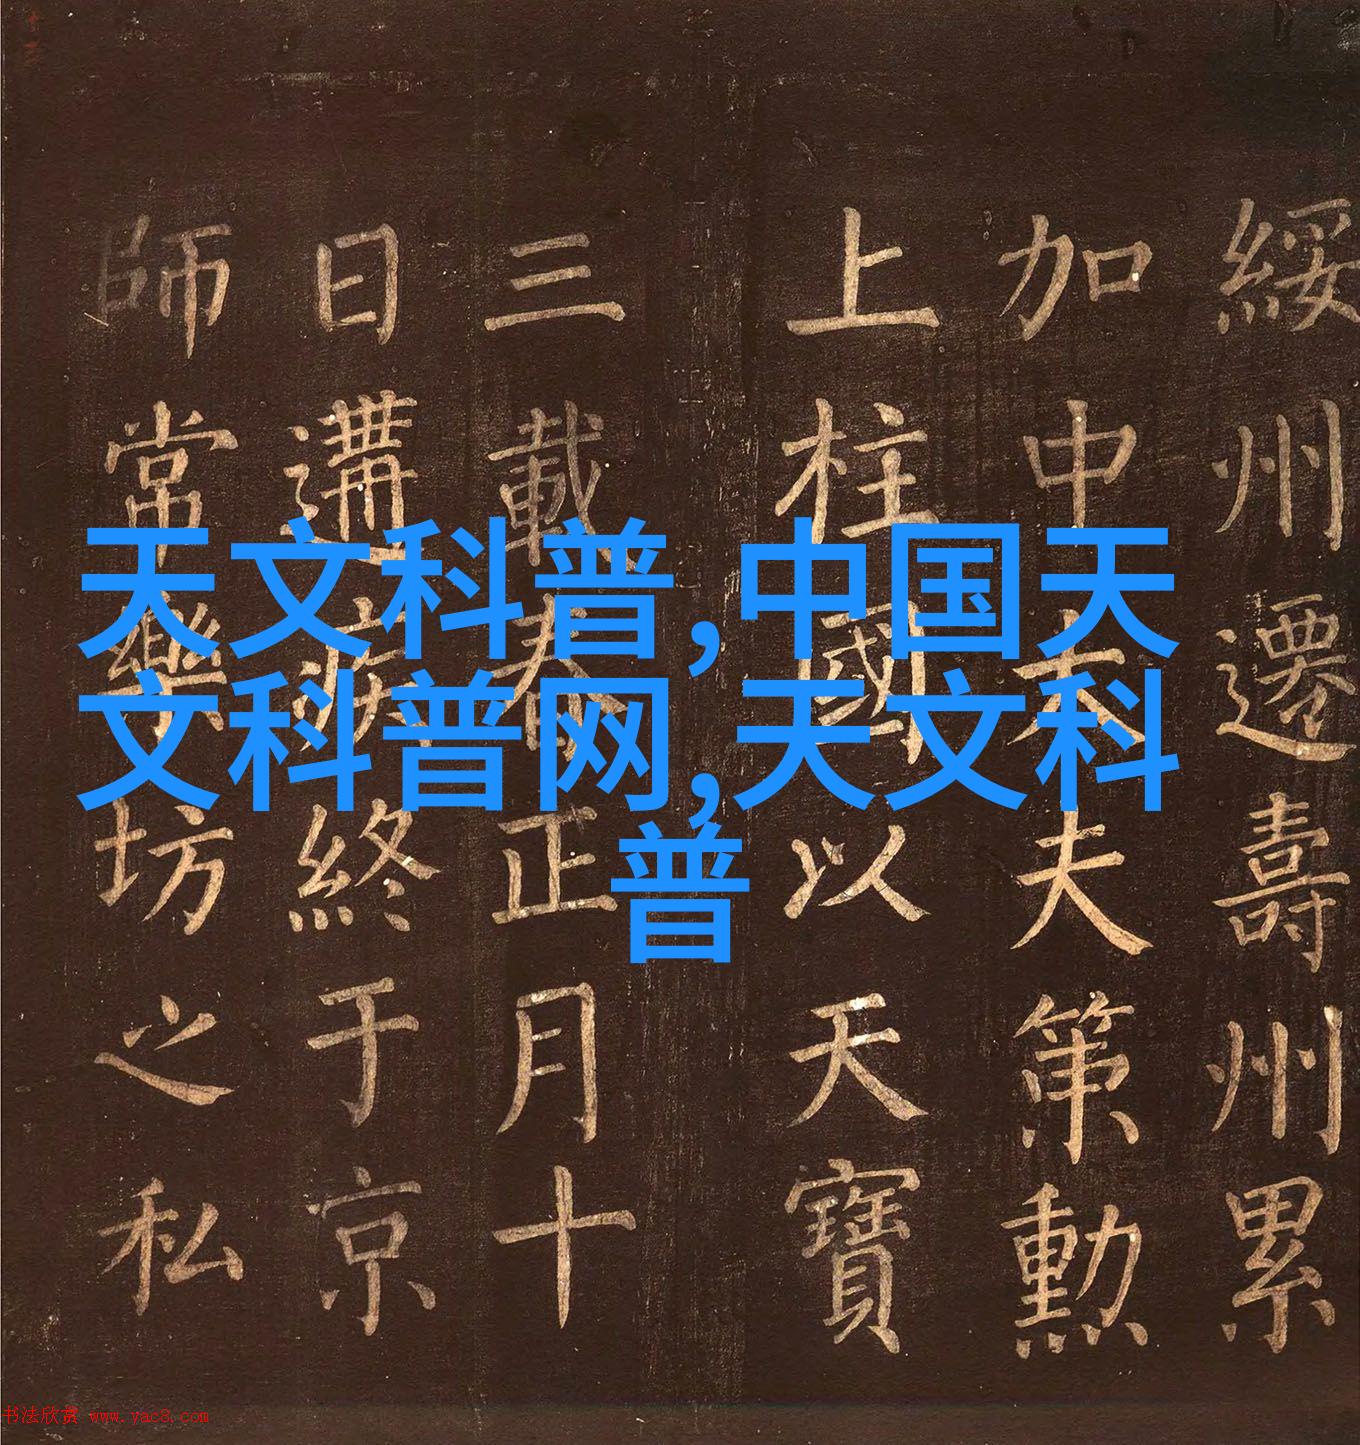 綏州遷壽州累
加中大夫第勳
上柱國以天寶
三載春正月十
日遘疾終于京
師常樂坊之私
天文科普,中国天
文科普网,天文科
普
书法欣赏 www.yac8.com